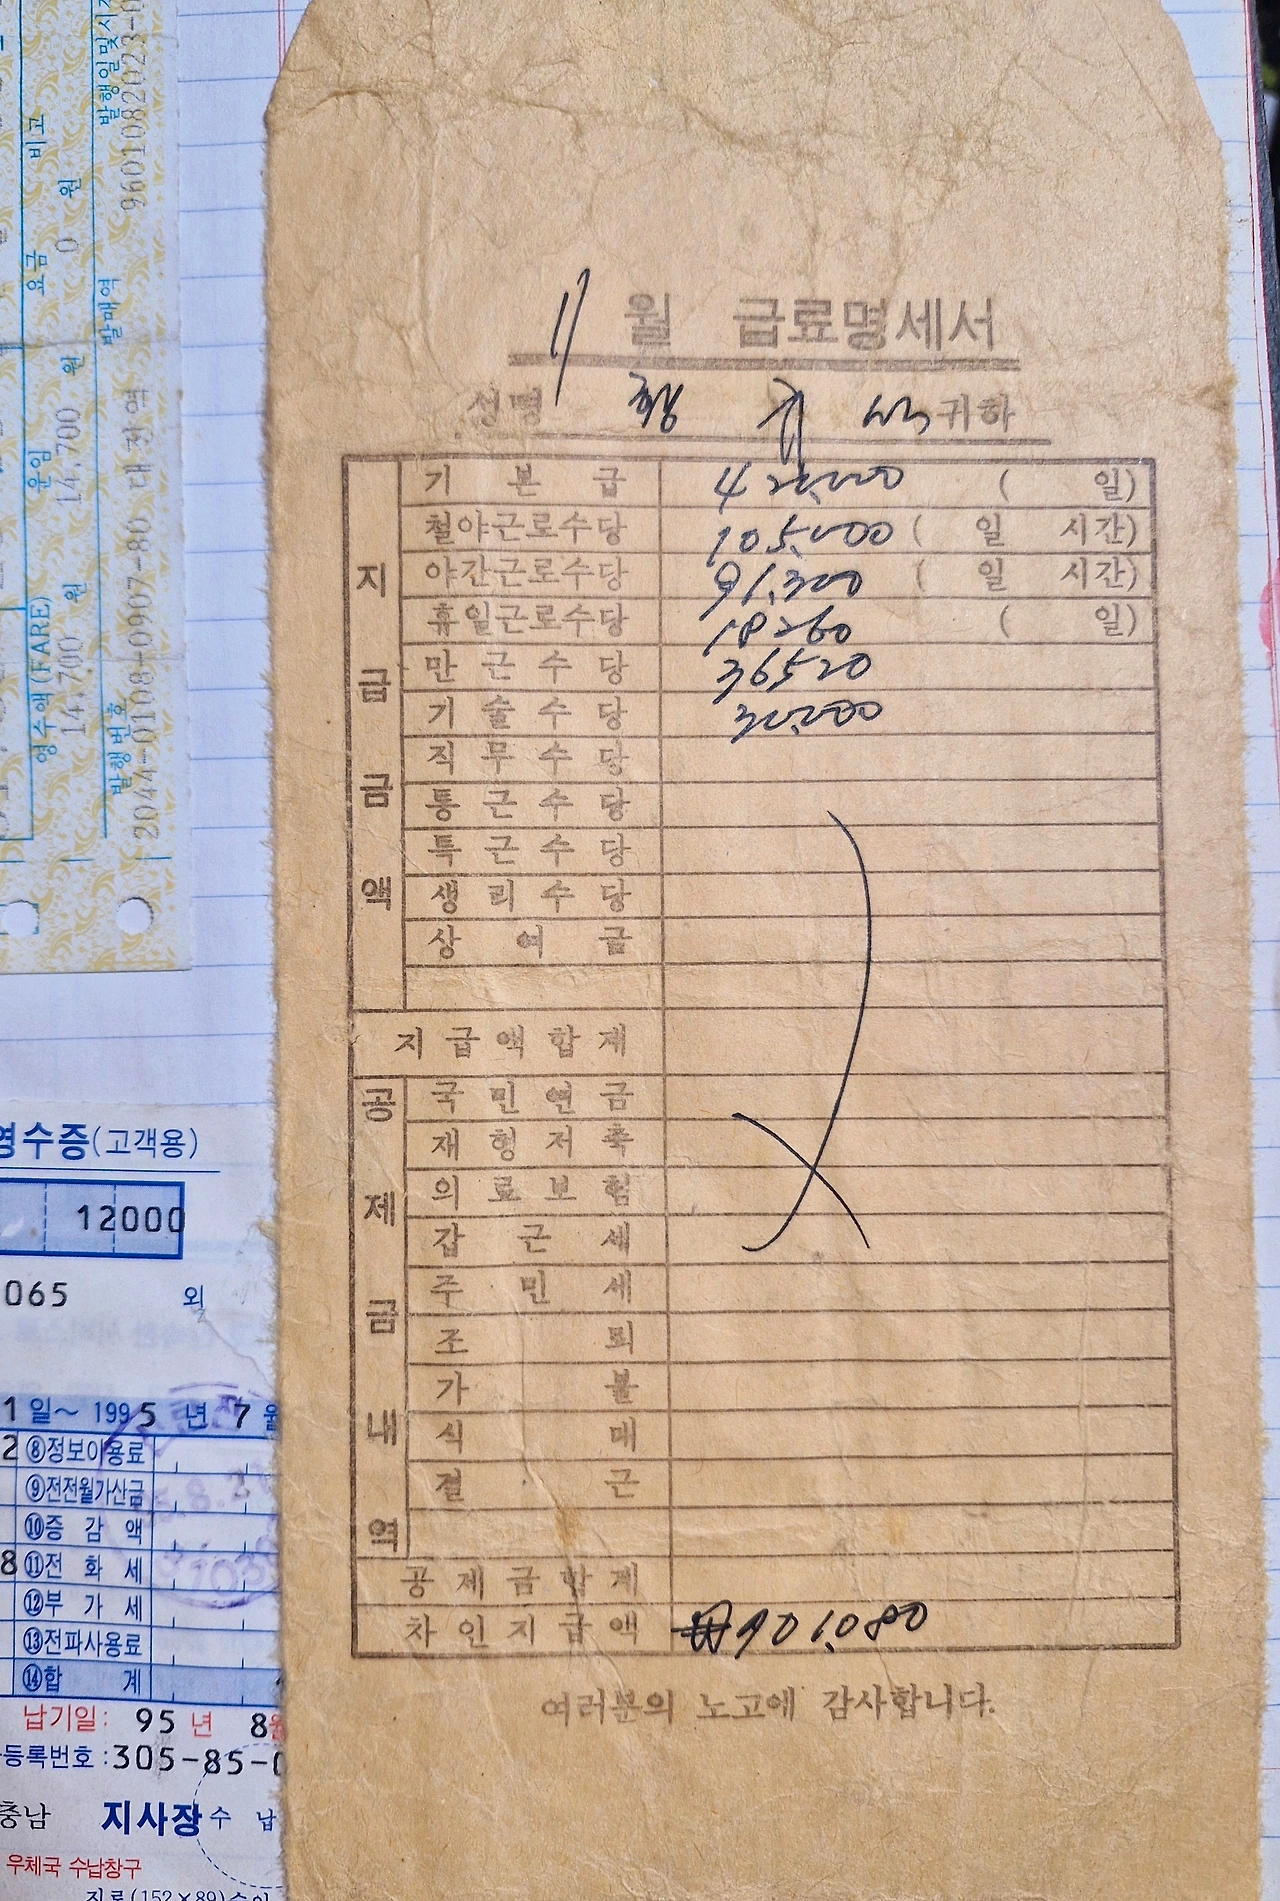 11월 급료명세서
성명 귀하
지급금액
기본급 420,000 ( 일)
철야근로수당 105,000 ( 일 시간)
야간근로수당 91,300 ( 일 시간)
휴일근로수당 18260 ( 일)
만근수당 36520
기술수당 30,000
직무수당
통근수당
특근수당
생리수당
상여금
지급액합계
공제금내역
국민연금
재형저축
의료보험
갑근세
주민세
조퇴
가불
식대
결근
공제금합계
차인지급액 ₩901,080
여러분의 노고에 감사합니다.
비고
요금 0 원
운임 14,700 원
영수액(FARE) 14,700 원
발행일및시
9601082023-0
발매역
발행번호
2044-0108-0907-80 대전역
영수증(고객용)
12000
065 외
1일~ 1995년 7월
2 ⑧정보이용료
⑨전전월가산금
⑩증감액
8 ⑪전화세
⑫부가세
⑬전파사용료
⑭합계
납기일: 95년 8월
등록번호:305-85-0
충남 지사장 수납
우체국 수납창구